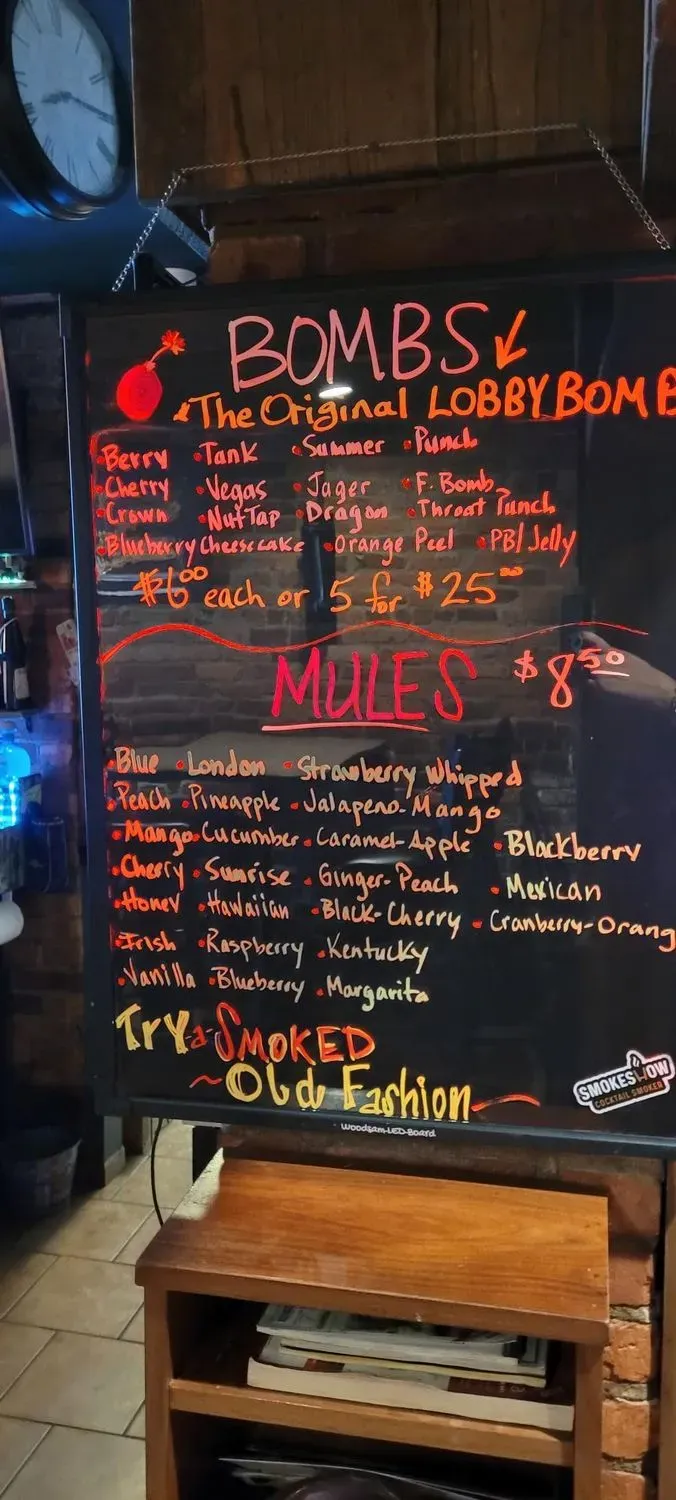 BOMBS
The Original LOBBYBOMB
•Berry •Tank •Summer •Punch
•Cherry •Vegas •Jager •F. Bomb
•Crown •NutTap •Dragon •Throat Punch
•Blueberry Cheesecake •Orange Peel •PB/Jelly
$6.00 each or 5 for $25.00
MULES $8.50
•Blue •London •Strawberry Whipped
•Peach •Pineapple •Jalapeno-Mango
•Mango •Cucumber •Caramel-Apple •Blackberry
•Cherry •Sunrise •Ginger-Peach •Mexican
•Honey •Hawaiian •Black-Cherry •Cranberry-Orang
•Irish •Raspberry •Kentucky
•Vanilla •Blueberry •Margarita
Try-a-SMOKED
~Old Fashion~
SMOKESWOW
COCKTAIL SMOKER
Woodsam-LED-Board